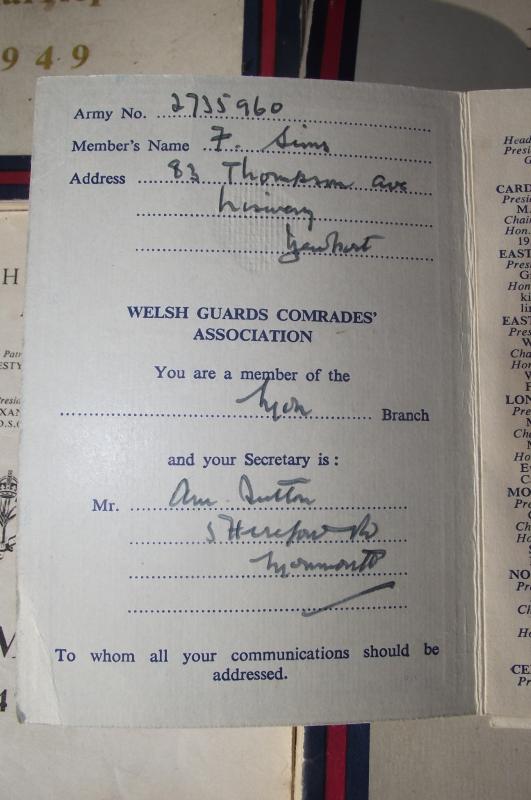 1949
Army No. 2735960
Member's Name F. Sims
Address 83 Thompson Ave
Newport
WELSH GUARDS COMRADES'
ASSOCIATION
You are a member of the
Mon Branch
and your Secretary is :
Mr. Sutton
5 Hereford Rd
Monmouth
To whom all your communications should be
addressed.
Head
Presi
CARD
Presid
M.
Chair
Hon.
19
EAST
Presi
G
Hon
ki
lin
EAST
Pres
W
Cha
Hon
LON
Pres
Cha
Ho
MO
Pre
Cha
Ho
NO
Pr
Ch
Ho
CE
Pr